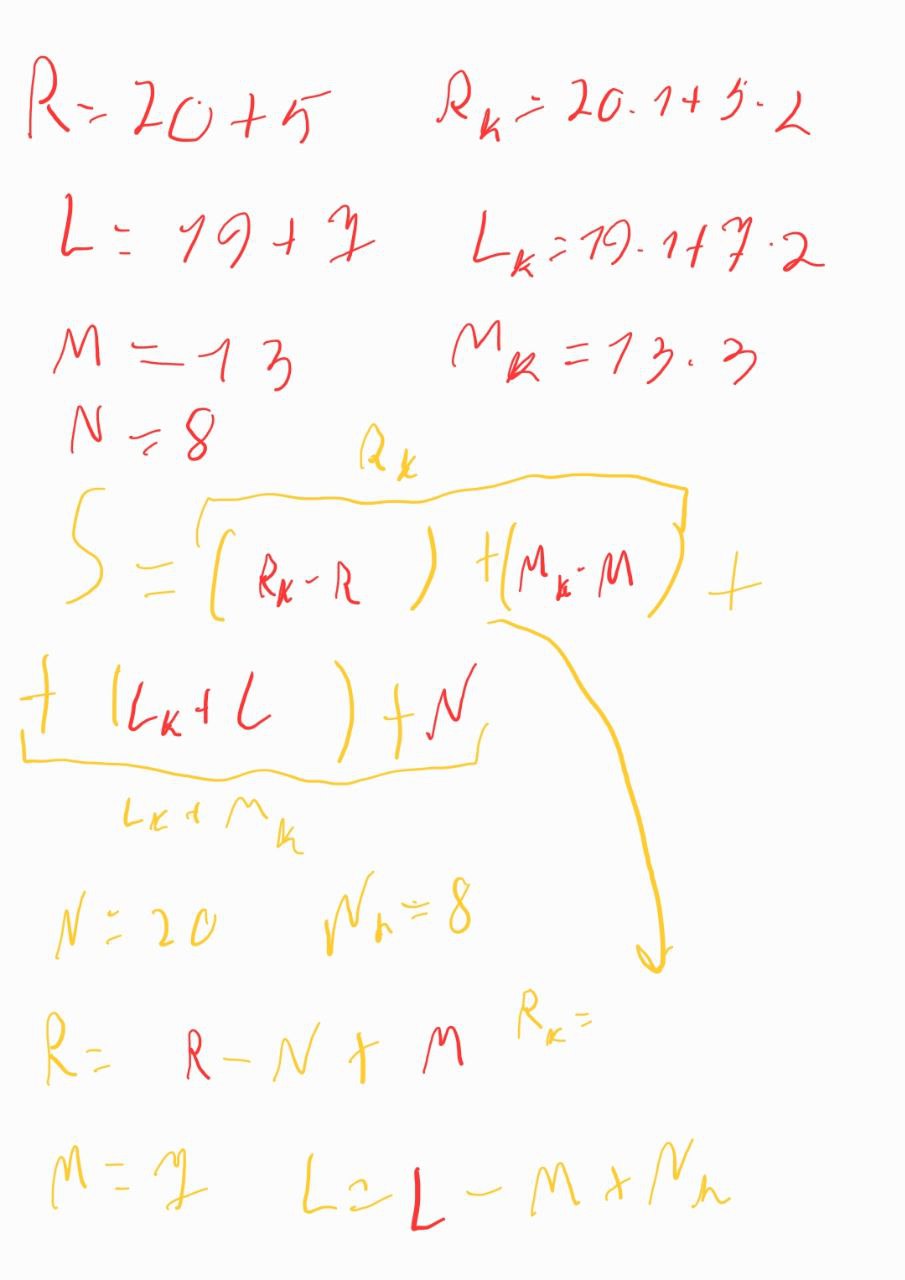 R = 20 + 5 R_k = 20 · 1 + 5 · 2
L = 19 + 7 L_k = 19 · 1 + 7 · 2
M = 13 M_k = 13 · 3
N = 8
R_k
S = (R_k - R) + (M_k - M) +
+ (L_k + L) + N
L_k + M_k
N = 20 N_n = 8
R = R - N + M R_k =
M = 7 L = L - M + N_n